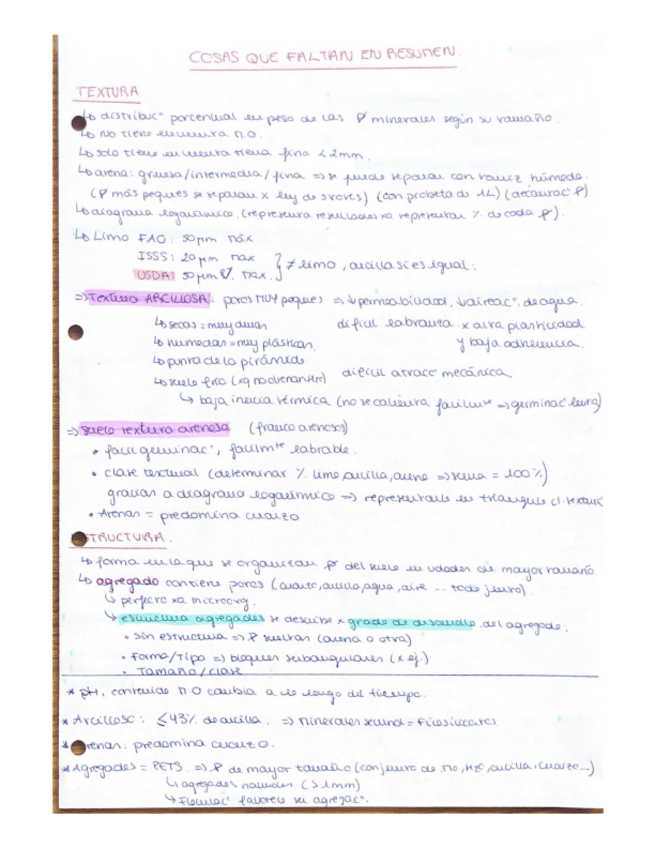 COSAS QUE FALTAN EN RESUMEN.
TEXTURA
↳ distribuc° porcentual en peso de las P minerales según su tamaño.
↳ no tiene en cuenta M.O.
↳ solo tiene en cuenta tierra fina < 2mm.
↳ arena: gruesa/intermedia/fina => se puede separar con tamiz húmedo.
(P más peques se separan x ley de stokes) (con probeta de 1L) (decantac° P)
↳ diagrama logarítmico. (representa resultados xa representar % de cada P).
↳ Limo FAO: 50 µm máx
ISSS: 20 µm max } ≠ limo, arcilla si es igual.
USDA: 50 µm max.
=> Textura ARCILLOSA: poros MUY peques => ↓permeabilidad, ↓aireac°. de agua.
↳ secas = muy duras difícil labranza x alta plasticidad
↳ humedas = muy plásticas y baja adherencia.
↳ punta de la pirámide
↳ suelo frío (xq no drenan H2O) difícil atracc° mecánica
↳ baja inercia térmica (no se calienta facilmte => germinac° lenta)
=> suelo textura arenosa (franco arenoso)
• facil germinac°, facilmte labrable.
• clase textural (determinar % limo, arcilla, arena => suma = 100%)
gracias a diagrama logarítmico => representarle en triangulo cl. textural
• Arenas = predomina cuarzo
ESTRUCTURA.
↳ forma en la que se organizan P del suelo en uds de mayor tamaño
↳ agregado contiene poros (cuarzo, arcilla, agua, aire ... todo junto).
↳ perfecto xa microorg.
↳ estructura agregados se describe x grado de desarrollo del agregado.
• Sin estructura => P sueltas (arena o otra)
• Forma/Tipo => bloques subangulares (x ej.)
• Tamaño/clase
* pH, contenido M.O cambia a lo largo del tiempo.
* Arcillosa: ≤43% de arcilla. => minerales secund = filosilicatos
* Arenas: predomina cuarzo.
* Agregados = PETS. => P de mayor tamaño (conjunto de MO, H2O, arcilla, cuarzo...)
↳ agregados naturales (>1mm)
↳ Floculac° favorece su agregac°.